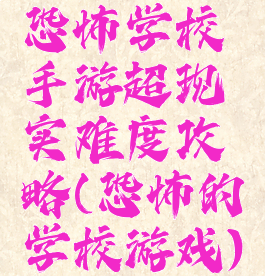 恐怖学校
手游超现
实难度攻
略(恐怖的
学校游戏)